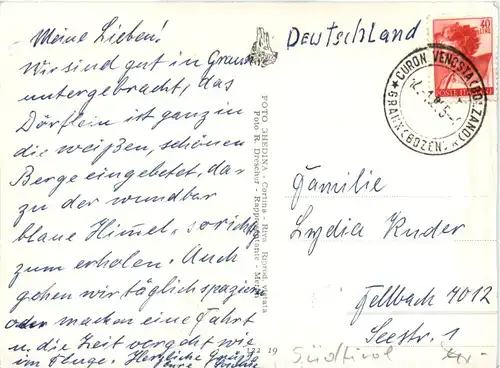 Meine Lieben!
Wir sind gut in Graun
untergebracht, das
Dörflein ist ganz in
die weißen, schönen
Berge eingebetet, da-
zu der wundbar
blaue Himmel, so richtig
zum erholen. Auch
gehen wir täglich spazieren
oder machen eine Fahrt
u. die Zeit vergeht wie
im Fluge. Herzliche Grüße
Eure
FOTO GHEDINA - Cortina - Riva - Riprod. vietata
Foto R. Drescher - Rappresentante - Meran
122 19
Deutschland
40
LIRE
POSTE ITALIANE
CURON VENOSTA (BOLZANO)
* GRAUN (BOZEN) *
Familie
Lydia Kuder
Fellbach 7012
Seestr. 1
Südtirol